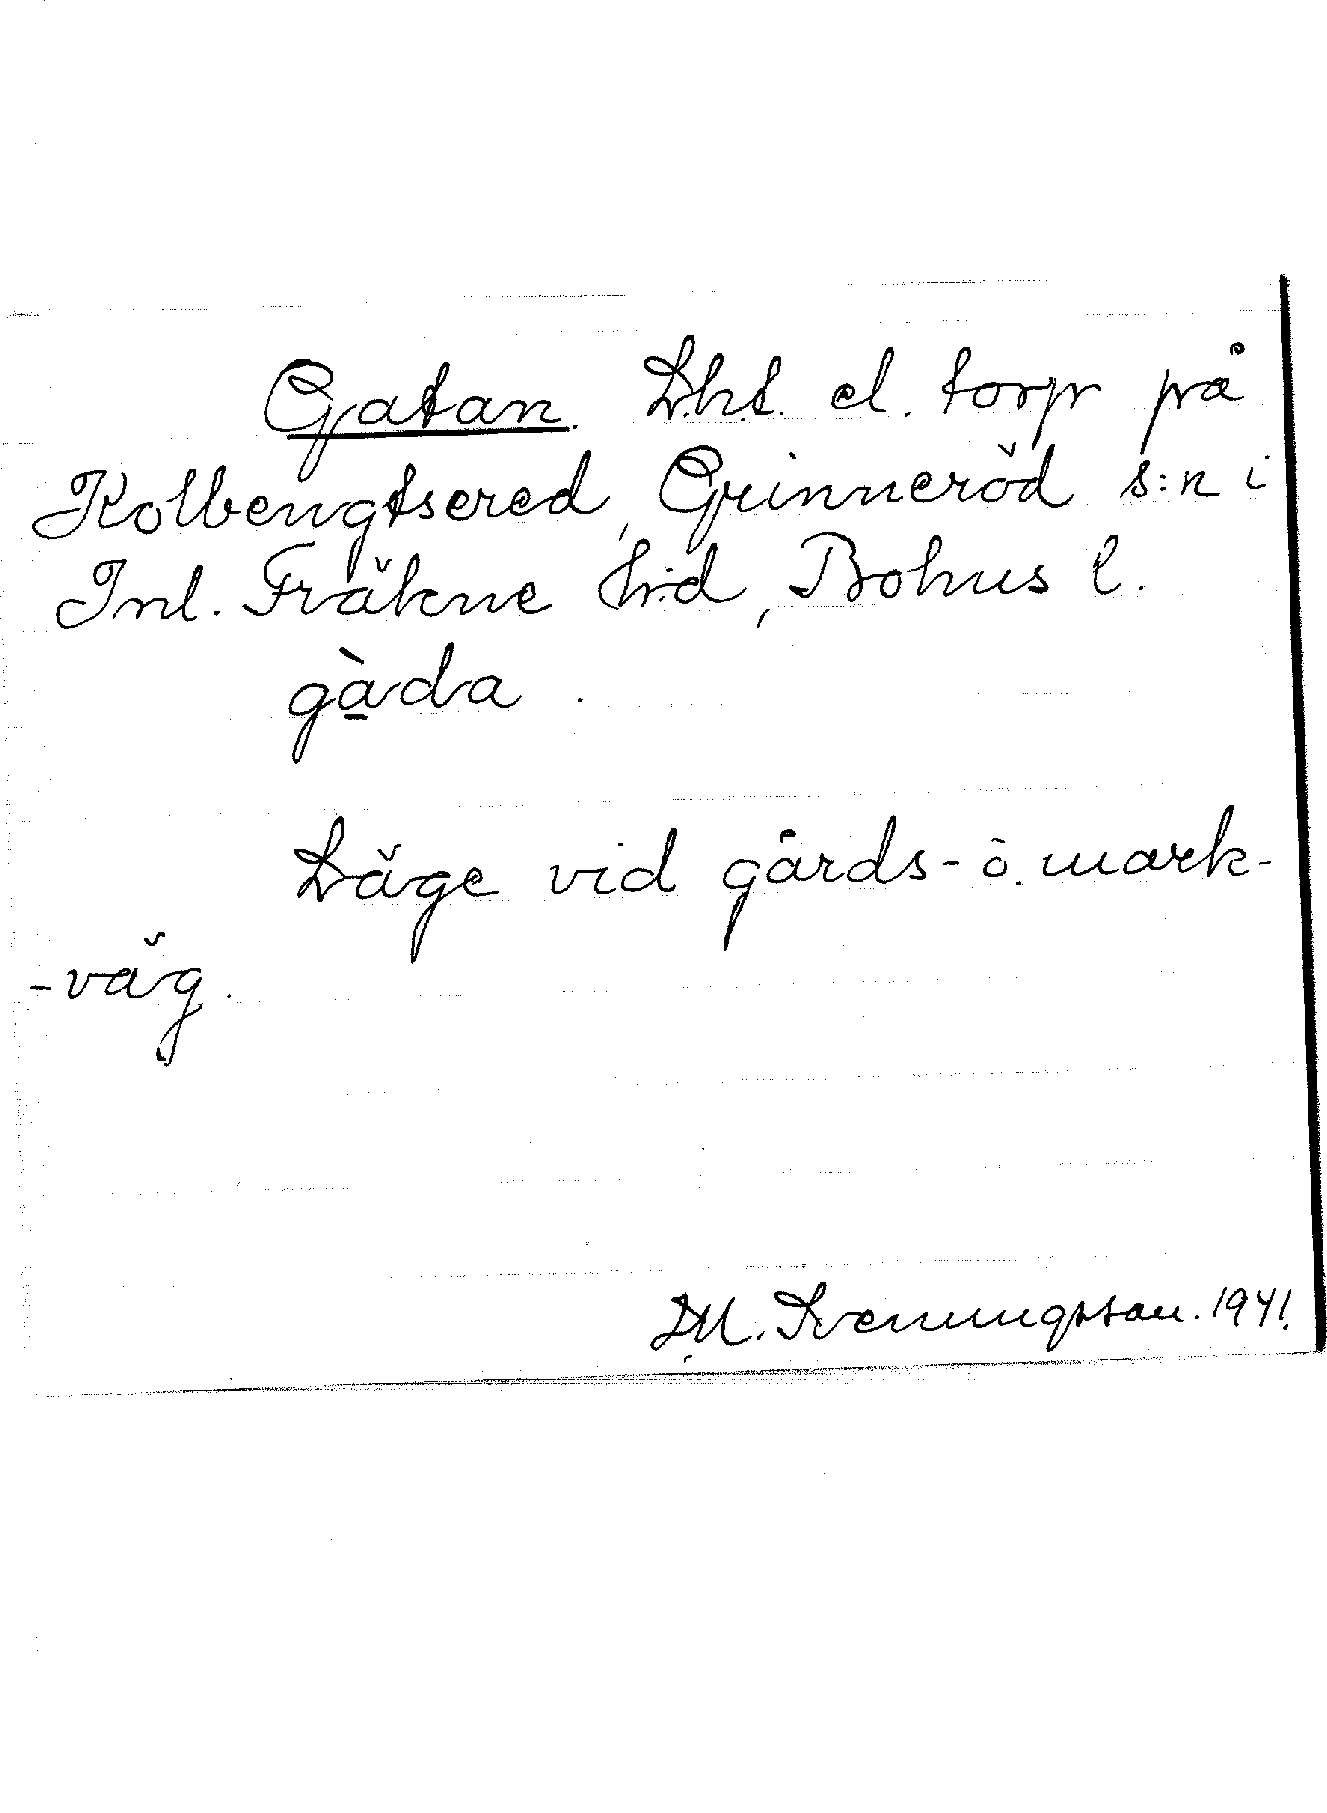 Gatan. Lht. el. torp på
Kolbengtsered, Grinneröd s:n i
Inl. Fräkne h:d, Bohus l.
gàda.
Läge vid gårds- o. mark-
-väg.
D.M. Svenungsson. 1941.